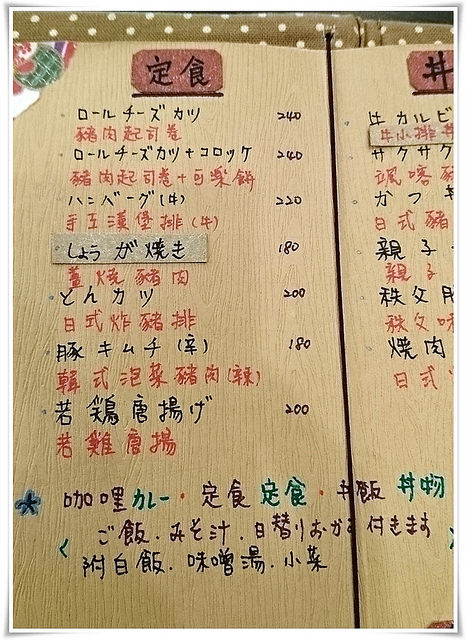 定食
ロールチーズカツ 240
豬肉起司卷
ロールチーズカツ+コロッケ 240
豬肉起司卷+可樂餅
ハンバーグ(牛) 220
手工漢堡排(牛)
しょうが焼き 180
薑燒豬肉
とんカツ 200
日式炸豬排
豚キムチ(辛) 180
韓式泡菜豬肉(辣)
若鶏唐揚げ 200
若雞唐揚
丼
牛カルビ
牛小排丼
サクサク
颯喀
かつ
日式豬
親子
親子
秩父
秩父味
焼肉
日式
咖哩カレー・定食定食・丼飯丼物
ご飯.みそ汁.日替りおかず付きます
附白飯.味噌湯.小菜